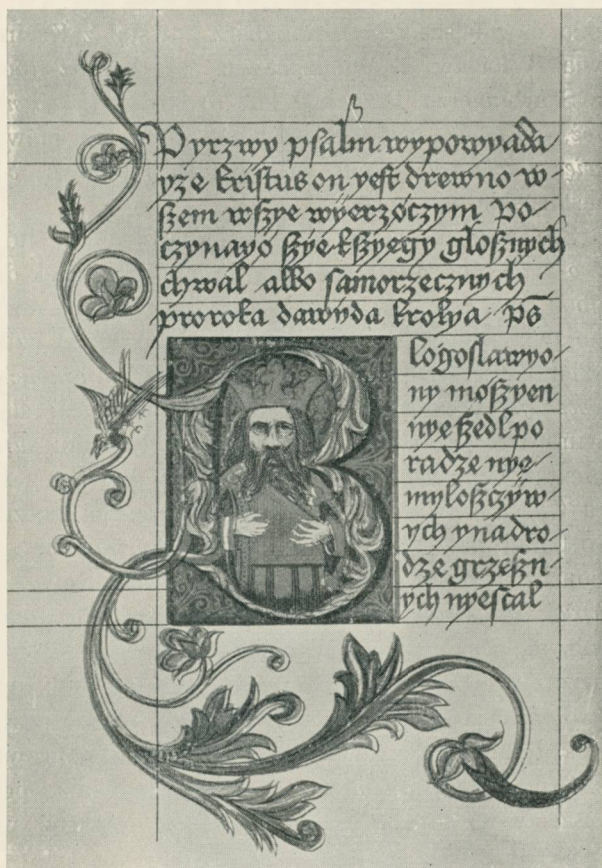 Pyrzwy psalm wypowyada
yze kristus on yest drewno w-
szem wszye wyerzøczym Po-
czynayø szye kszyegy glosznych
chwal albo samorzecznych
proroka dawyda krolya ps
Bløgoslawyo-
ny møszyen
nye szedl po
radze nye-
myloszczyw-
ych y na dro-
dze grzeszn-
ych nye stal